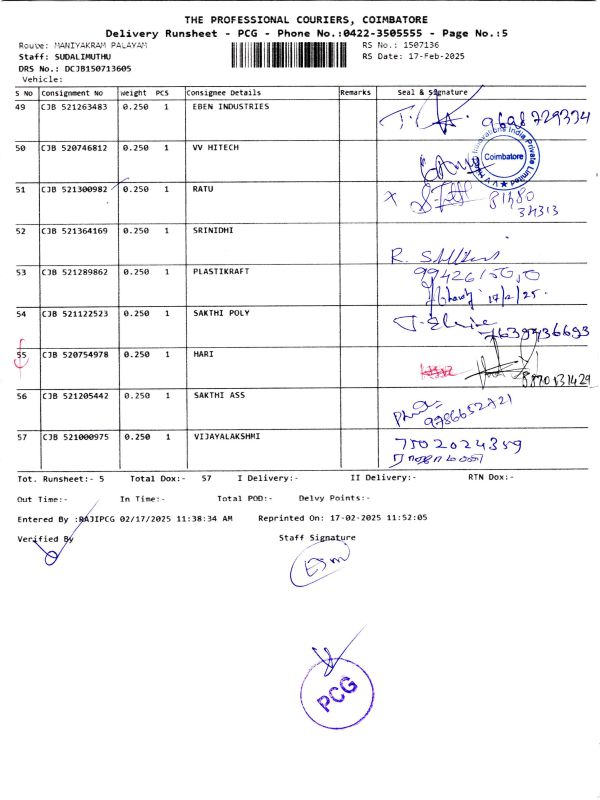 THE PROFESSIONAL COURIERS, COIMBATORE
Delivery Runsheet - PCG - Phone No.:0422-3505555 - Page No.:5
Route: MANIYAKRAM PALAYAM RS No.: 1507136
Staff: SUDALIMUTHU RS Date: 17-Feb-2025
DRS No.: DCJB150713605
Vehicle:
S NO Consignment No Weight PCS Consignee Details Remarks Seal & Signature
49 CJB 521263483 0.250 1 EBEN INDUSTRIES 9698729334
50 CJB 520746812 0.250 1 VV HITECH
Innovations India Private Limited
Coimbatore
51 CJB 521300982 0.250 1 RATU
52 CJB 521364169 0.250 1 SRINIDHI
53 CJB 521289862 0.250 1 PLASTIKRAFT
17/2/25.
54 CJB 521122523 0.250 1 SAKTHI POLY
55 CJB 520754978 1 0.250 1 HARI
8870131429
56 CJB 521205442 0.250 1 SAKTHI ASS
57 CJB 521000975 0.250 1 VIJAYALAKSHMI
7502024359
Tot. Runsheet:- 5 Total Dox:- 57 I Delivery:- II Delivery:- RTN Dox:-
Out Time:- In Time:- Total POD:- Delvy Points:-
Entered By :RAJIPCG 02/17/2025 11:38:34 AM Reprinted On: 17-02-2025 11:52:05
Verified By Staff Signature
PCG